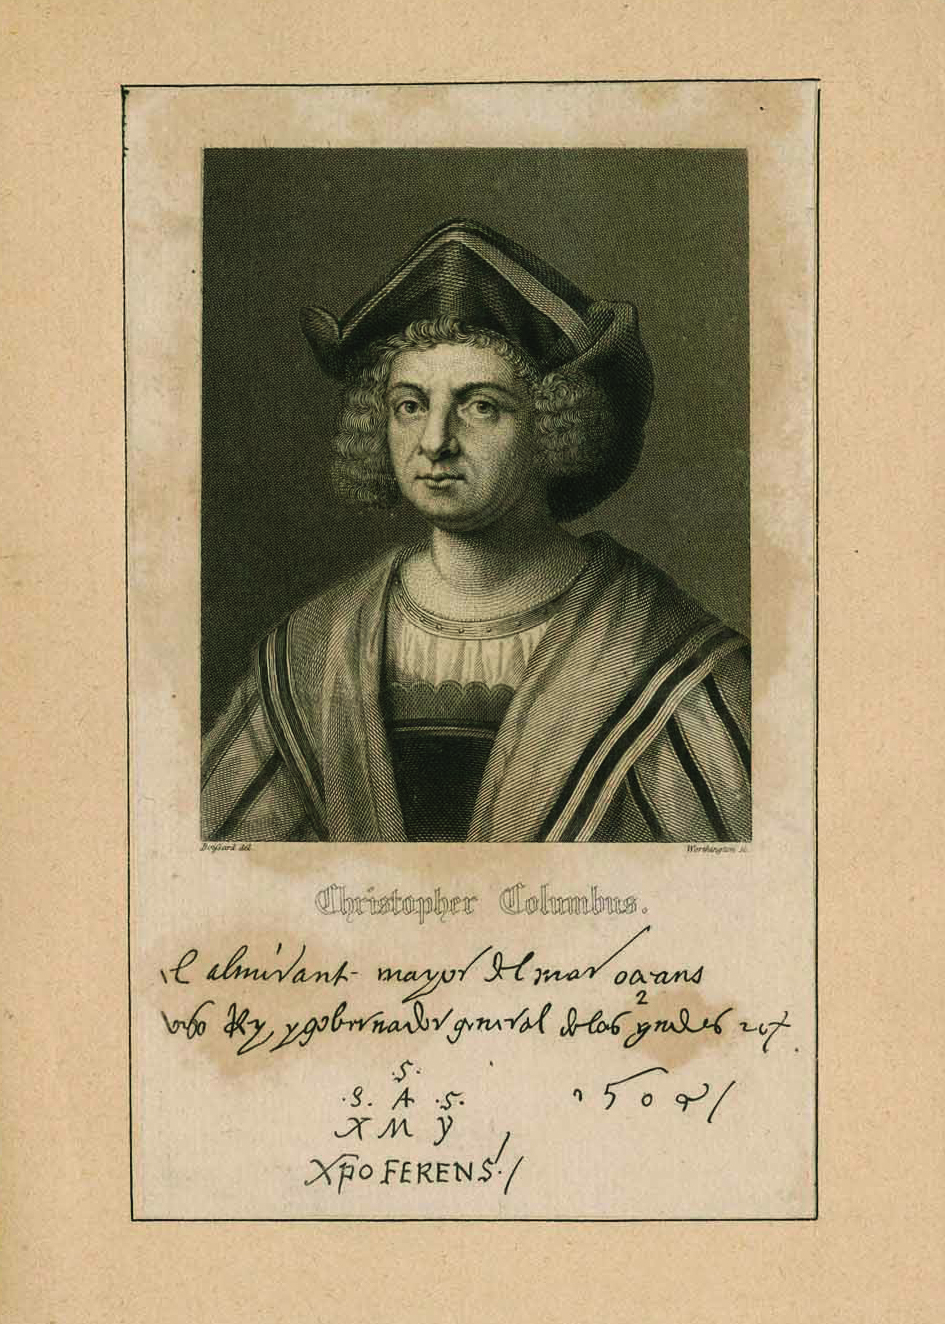 Boissard del.
Worthington sc.
Christopher Columbus.
el almirant mayor del mar oceano
viso Rey, y gobernador general de las
.S.
.S. A .S.
X M Y
Xpo FERENS./
1502/